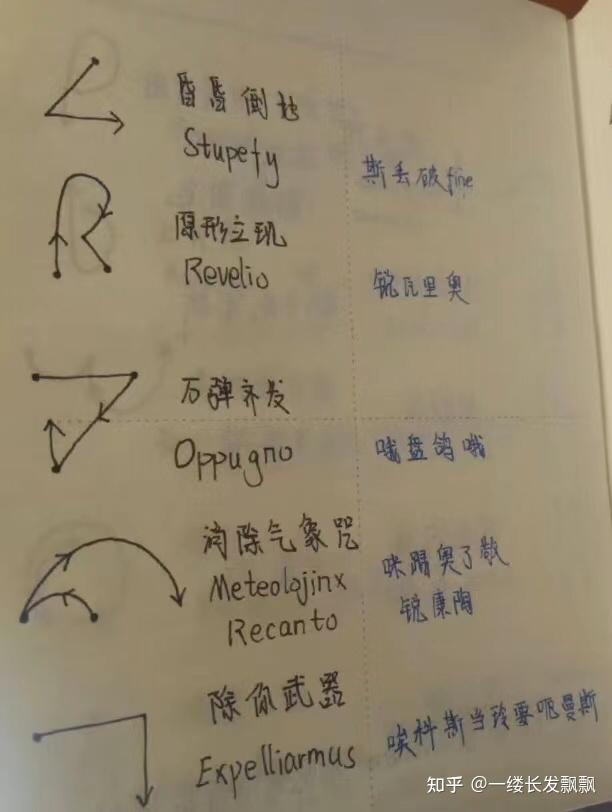 昏昏倒地
Stupefy
斯丢破fine
隐形立现
Revelio
锐瓦里奥
万弹齐发
Oppugno
哦盘鸽哦
消除气象咒
Meteolojinx
Recanto
咪蹋奥了敬
锐康陶
除你武器
Expelliarmus
唉科斯当玲要呃曼斯
知乎 @一缕长发飘飘